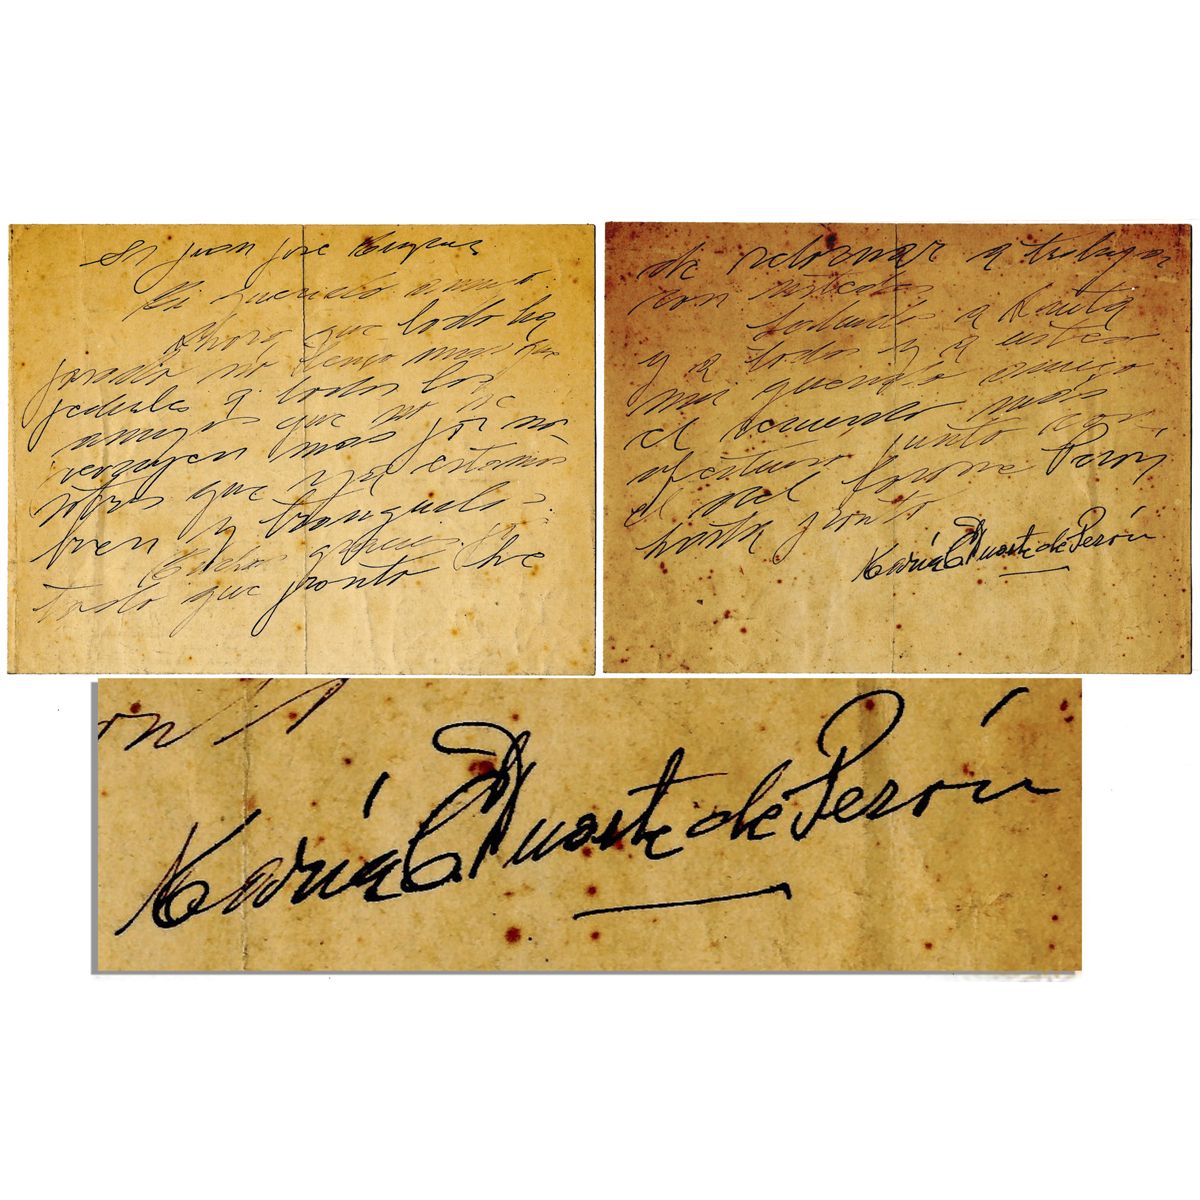 Sr Juan José
Mi querido amigo.
Ahora que todo ha
pasado no tengo más que
pedirles a todos los
amigos que no se
 más por no-
sotros que ya estamos
bien y tranquilos.
 gracias.
 que pronto he
de retornar a trabajar
con ustedes
Saludos a
y a todos y a usted
mi querido amigo
el recuerdo más
 junto con
el del Perón
hasta pronto
María E Duarte de Perón
María E Duarte de Perón